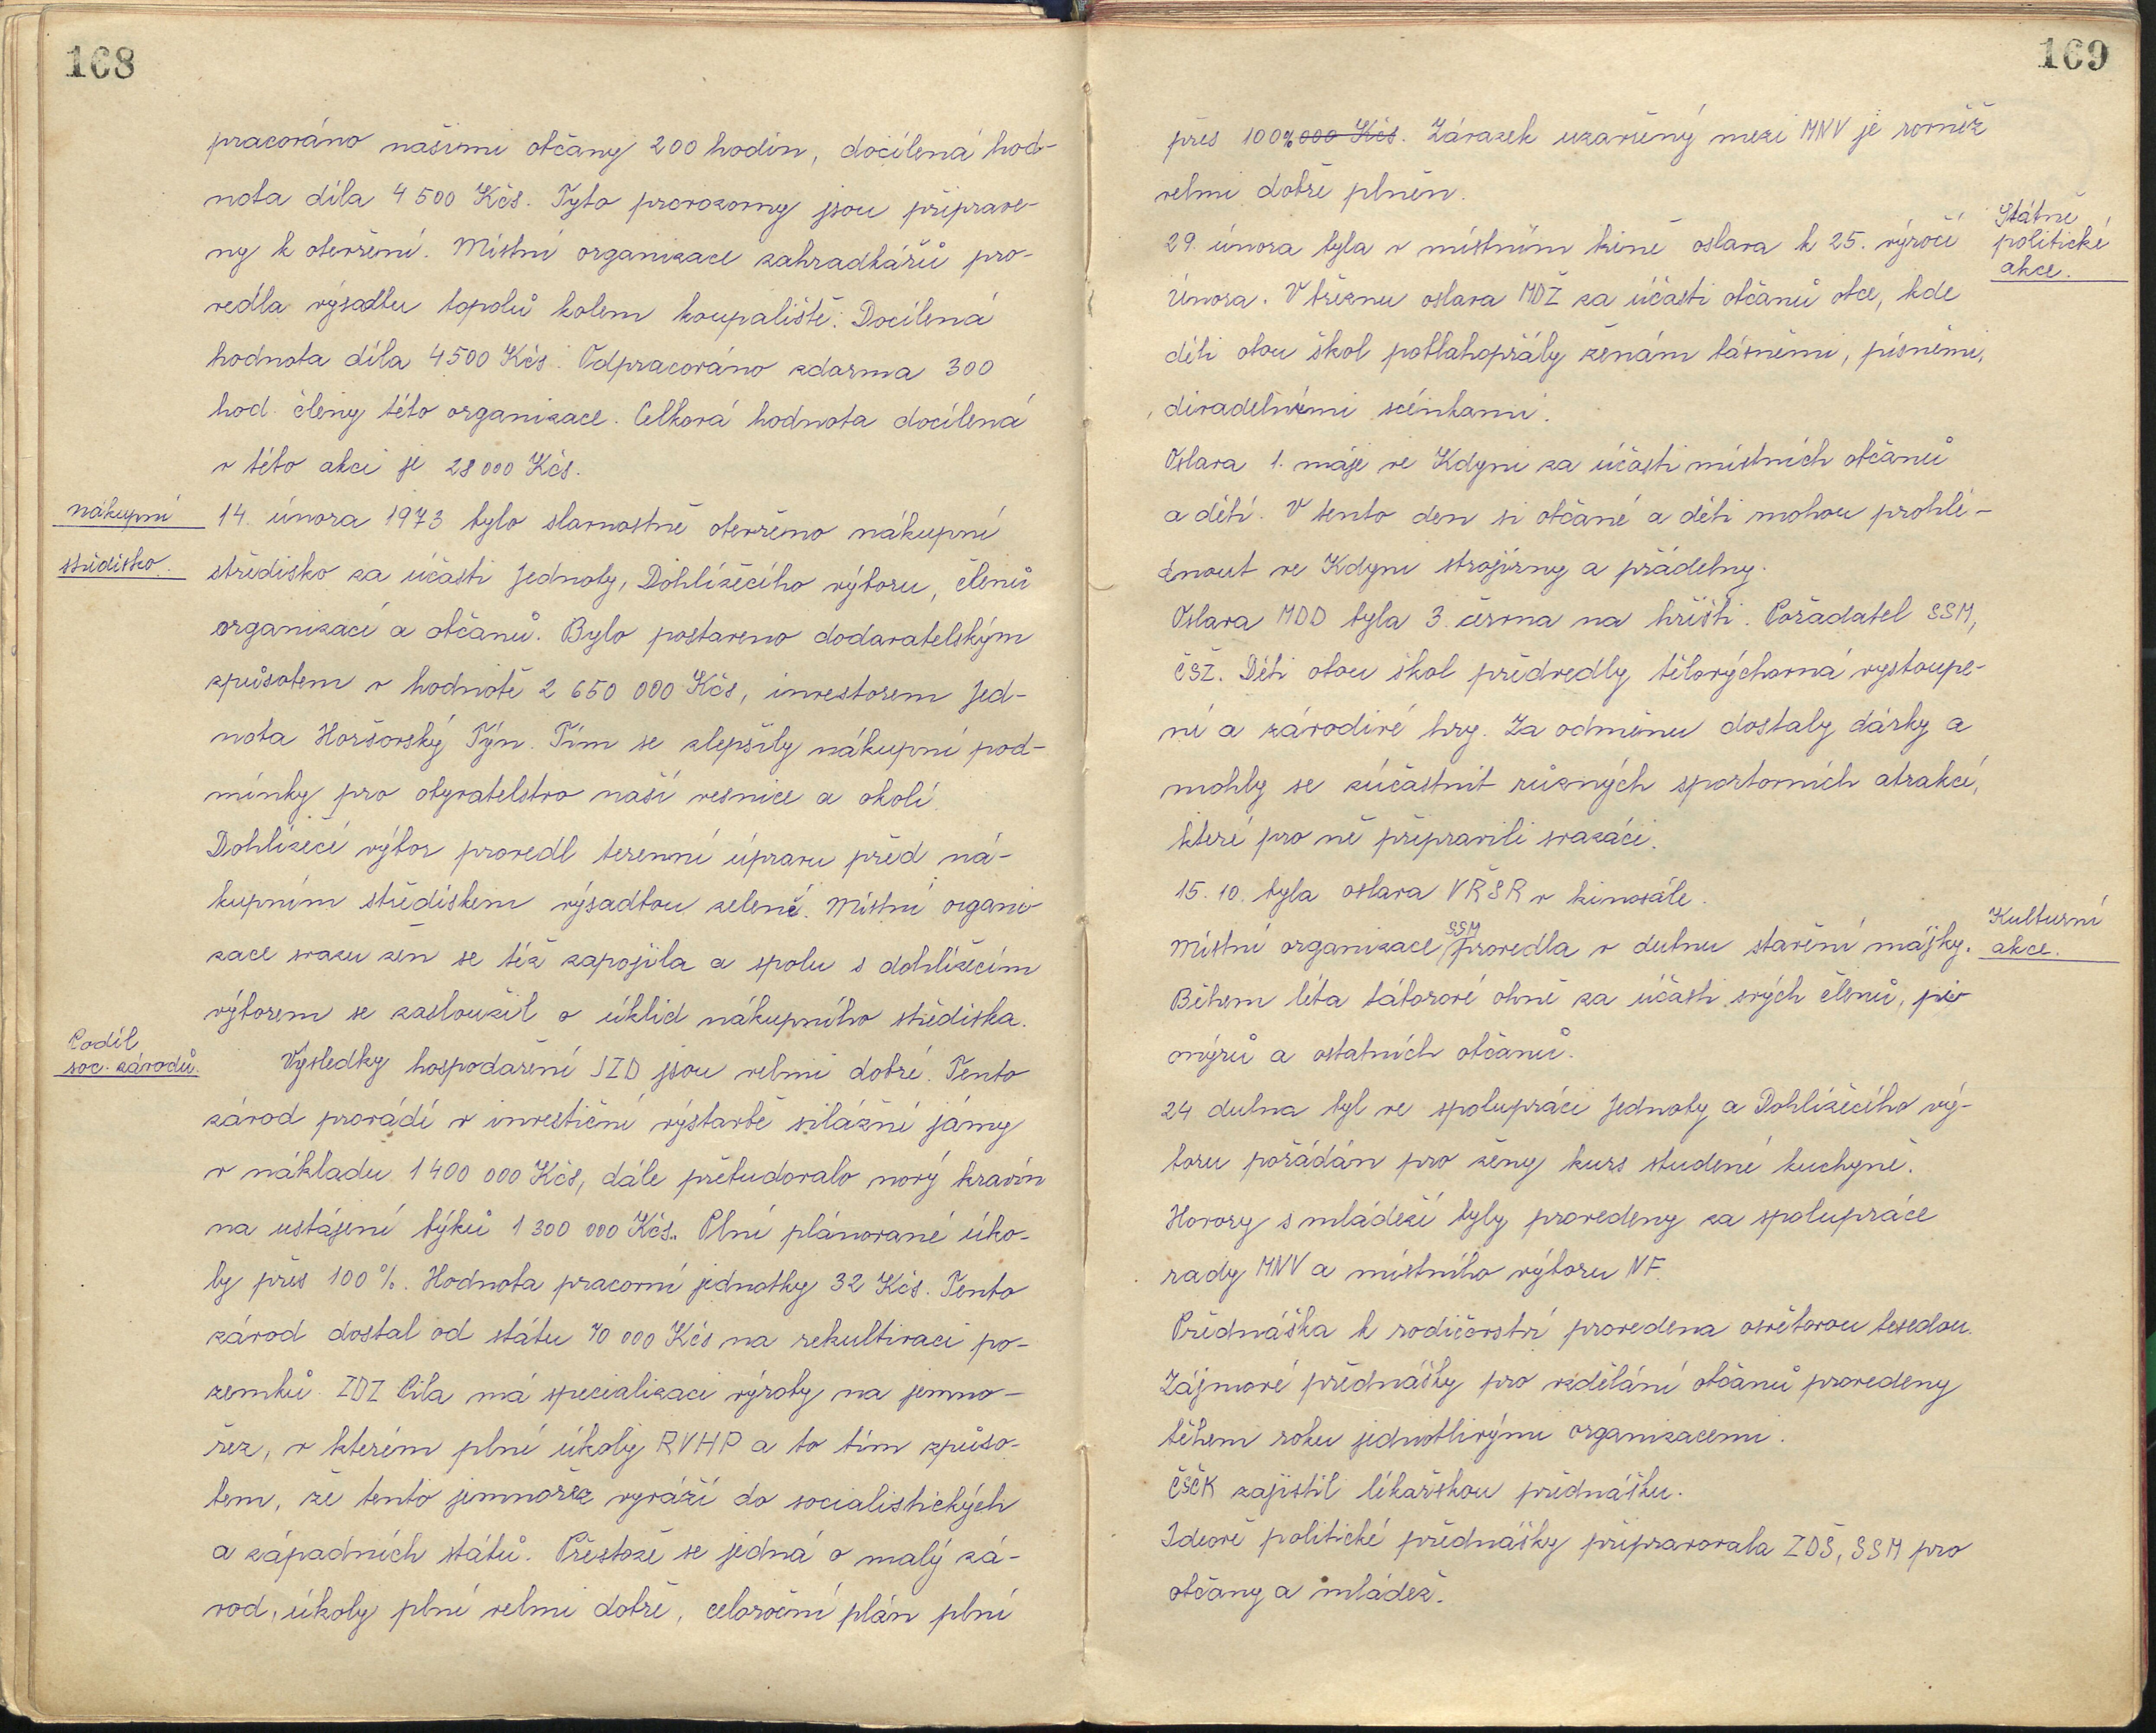 168
pracováno našimi občany 200 hodin, docílená hod-
nota díla 4 500 Kčs. Tyto provozovny jsou připrave-
ny k otevření. Místní organizace zahrádkářů pro-
vedla výsadbu topolů kolem koupaliště. Docílená
hodnota díla 4500 Kčs. Odpracováno zdarma 300
hod. členy této organizace. Celková hodnota docílená
v této akci je 28 000 Kčs.
nákupní
středisko.
14. února 1973 bylo slavnostně otevřeno nákupní
středisko za účasti Jednoty, Dohlížecího výboru, členů
organizací a občanů. Bylo postaveno dodavatelským
způsobem v hodnotě 2 650 000 Kčs, investorem Jed-
nota Horšovský Týn. Tím se zlepšily nákupní pod-
mínky pro obyvatelstvo naší vesnice a okolí.
Dohlížečí výbor provedl terenní úpravu před ná-
kupním střediskem výsadbou zeleně. Místní organi-
zace svazu žen se též zapojila a spolu s dohlížecím
výborem se zasloužil o úklid nákupního střediska.
Podíl
soc. závodů.
Výsledky hospodaření JZD jsou velmi dobré. Tento
závod provádí v investiční výstavbě silážní jámy
v nákladu 1 400 000 Kčs, dále přebudovalo nový kravín
na ustájení býků 1 300 000 Kčs. Plní plánované úko-
ly přes 100 %. Hodnota pracovní jednotky 32 Kčs. Tento
závod dostal od státu 70 000 Kčs na rekultivaci po-
zemků. ZDZ Pila má specializaci výroby na jemno-
řez, v kterém plní úkoly RVHP a to tím způso-
bem, že tento jemnořez vyváží do socialistických
a západních států. Přestože se jedná o malý zá-
vod, úkoly plní velmi dobře, celoroční plán plní
169
přes 100% 000 Kčs. Závazek uzavřený mezi MNV je rovněž
velmi dobře plněn.
Státně
politické
akce.
29. února byla v místním kině oslava k 25. výročí
Února. V březnu oslava MDŽ za účasti občanů obce, kde
děti obou škol poblahopřály ženám básněmi, písněmi,
divadelními scénkami.
Oslava 1. máje ve Kdyni za účasti místních občanů
a dětí. V tento den si občané a děti mohou prohlé-
dnout ve Kdyni strojírny a přádelny.
Oslava MDD byla 3. června na hřišti. Pořadatel SSM,
ČSŽ. Děti obou škol předvedly tělovýchovná vystoupe-
ní a závodivé hry. Za odměnu dostaly dárky a
mohly se zúčastnit různých sportovních atrakcí,
které pro ně připravili svazáci.
15. 10. byla oslava VŘSR v kinosále.
Kulturní
akce.
Místní organizace SSM provedla v dubnu stavění májky.
Během léta táborové ohně za účasti svých členů, pio-
nýrů a ostatních občanů.
24 dubna byl ve spolupráci Jednoty a Dohlížecího vý-
boru pořádán pro ženy kurs studené kuchyně.
Hovory s mládeží byly provedeny za spolupráce
rady MNV a místního výboru NF.
Přednáška k rodičovství provedena osvětovou besedou.
Zájmové přednášky pro vzdělání občanů provedeny
během roku jednotlivými organizacemi.
ČSČK zajistil lékařskou přednášku.
Ideově politické přednášky připravovala ZDŠ, SSM pro
občany a mládež.